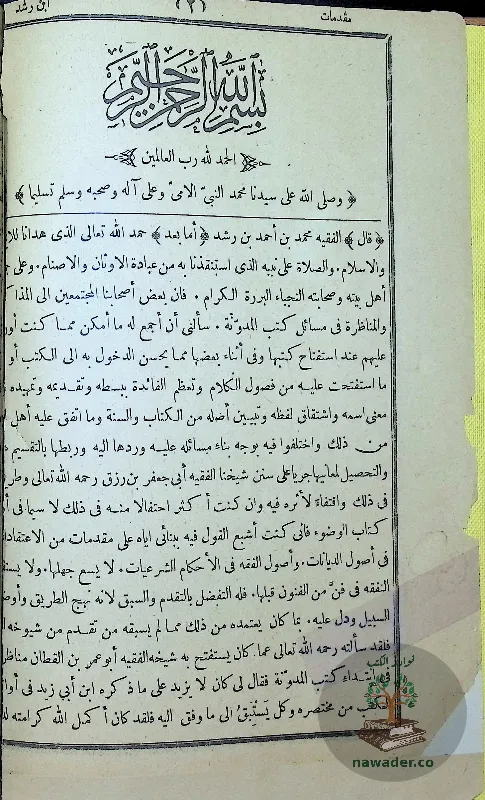 مقدمات (٢) ابن رشد
بسم الله الرحمن الرحيم
الحمد لله رب العالمين
﴿ وصلى الله على سيدنا محمد النبيّ الامىّ وعلى آله وصحبه وسلم تسليما ﴾
﴿ قال ﴾ الفقيه محمد بن أحمد بن رشد ﴿ أما بعد ﴾ حمد الله تعالى الذى هدانا
والاسلام . والصلاة على نبيه الذى استنقذنا به من عبادة الاوثان والاصنام . وعلى
أهل بيته وصحابته النجباء البررة الكرام . فان بعض أصحابنا المجتمعين الى المذا
والمناظرة فى مسائل كتب المدوّنة . سألنى أن أجمع له ما أمكن مما كنت أور
عليهم عند استفتاح كتبها وفى أثناء بعضها مما يحسن الدخول به الى الكتب أو
ما استفتحت عليه من فصول الكلام وتعظم الفائدة ببسطه وتقديمه وتمهيده
معنى اسمه واشتقاق لفظه وتبيين أصله من الكتاب والسنة وما اتفق عليه أهل
من ذلك واختلفوا فيه بوجه بناء مسائله عليه وردها اليه وربطها بالتقسيم
والتحصيل لمعانيها جريا على سنن شيخنا الفقيه أبى جعفر بن رزق رحمه الله تعالى وطري
فى ذلك واقتفاء لأثره فيه وان كنت أكثر احتفالا منه فى ذلك لا سيما فى
كتاب الوضوء فانى كنت أشبع القول فيه ببنائى اياه على مقدمات من الاعتقادا
فى أصول الديانات . وأصول الفقه فى الأحكام الشرعيات . لا يسع جهلها . ولا يستق
التفقه فى فنّ من الفنون قبلها . فله التفضل بالتقدم والسبق لانه نهج الطريق وأوض
السبيل ودل عليه . بما كان يعتمده من ذلك مما لم يسبقه من تقدم من شيوخه
فلقد سألته رحمه الله تعالى عما كان يستفتح به شيخه الفقيه أبو عمر بن القطان مناظر
فى ابتداء كتب المدوّنة فقال لى كان لا يزيد على ما ذكره ابن أبى زيد فى أوا
من مختصره وكل يَسْتَبِقُ الى ما وفق اليه فلقد كان أكمل الله كرامته
نوادر الكتب
nawader.co